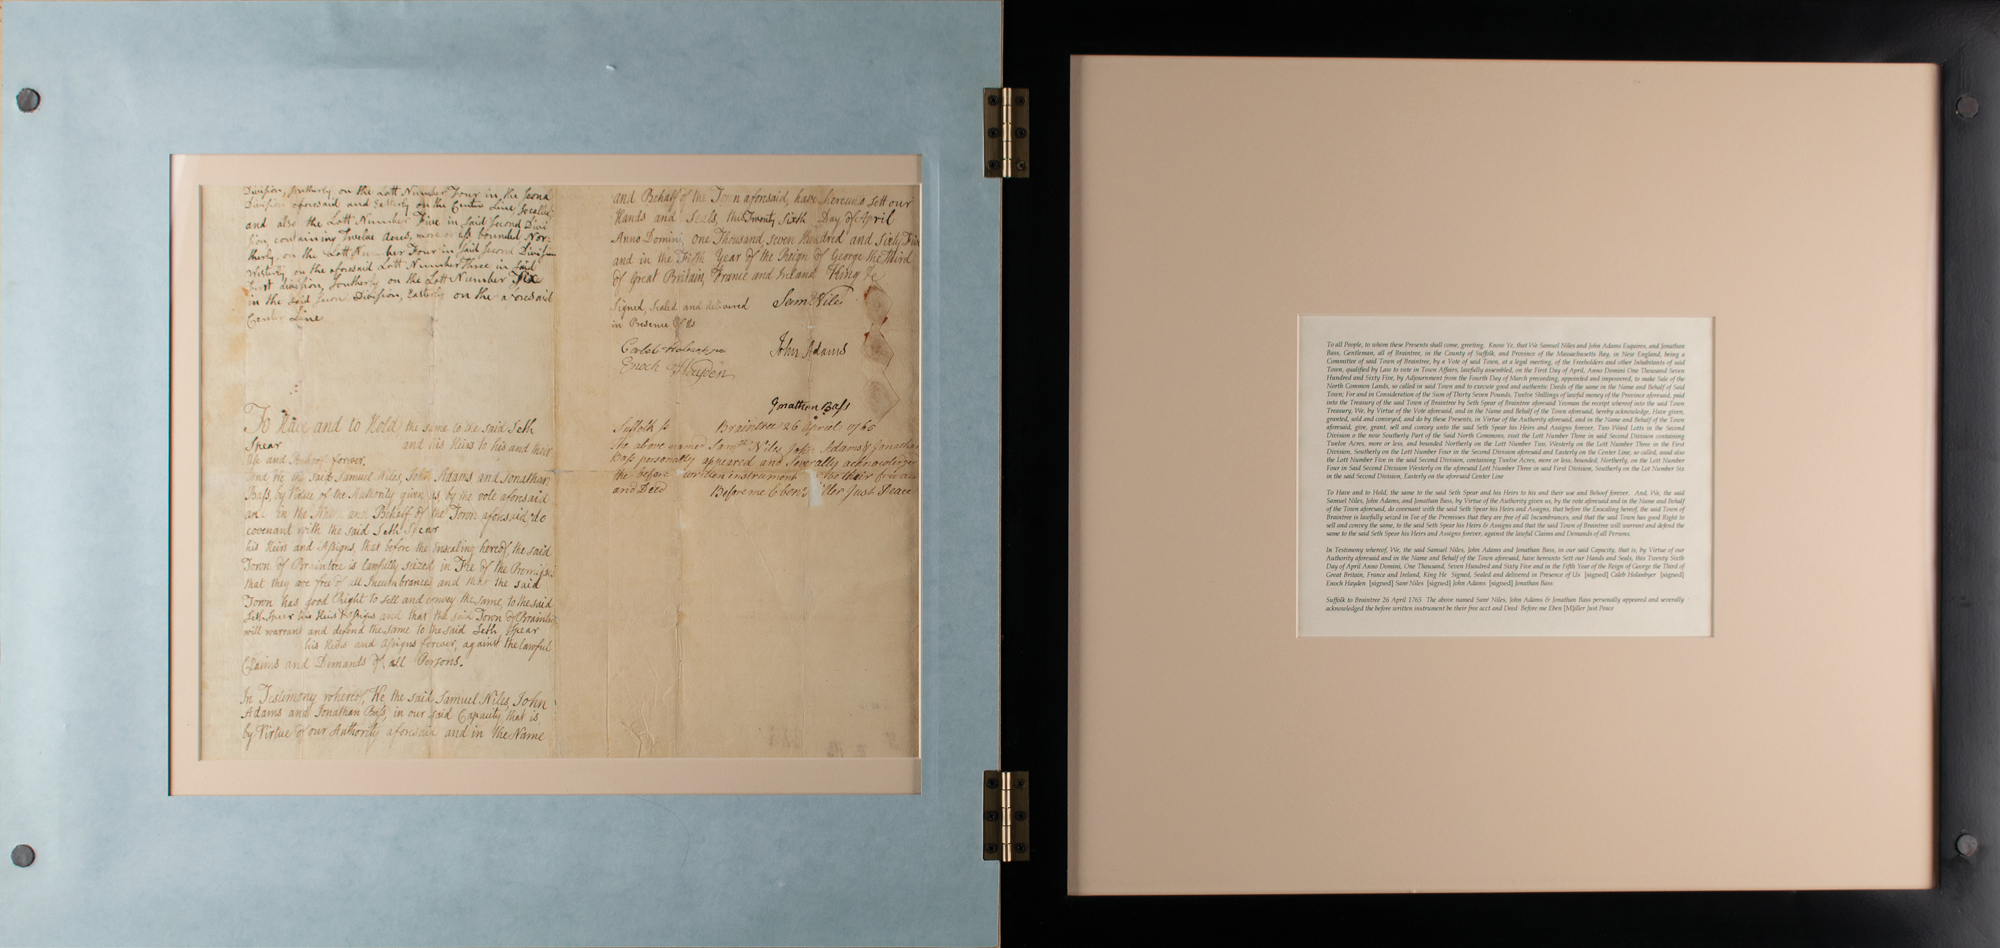 Division, Southerly on the Lott Number Four in the Second
Division aforesaid and Easterly on the Center Line, so called
and also the Lott Number Five in said Second Divi
sion, containing Twelve Acres, more or less bounded Nor:
therly, on the Lott Number Four in said Second Division
Westerly on the aforesaid Lott Number Three in said
first division, Southerly on the Lott Number Six
in the said Second Division, Easterly on the aforesaid
Center Line
To Have and to Hold the same to the said Seth
Spear and his Heirs to his and their
Use and Behoof forever.
And We the said Samuel Niles, John Adams and Jonathan
Bass, by Virtue of the Authority given us by the vote aforesaid
and in the Name and Behalf of the Town aforesaid, do
covenant with the said Seth Spear
his Heirs and Assigns, that before the Ensealing hereof, the said
Town of Braintree is lawfully seized in Fee of the Premises
that they are free of all Incumbrances and that the said
Town has good Right to sell and convey the same, to the said
Seth Spear his Heirs & Assigns and that the said Town of Braintree
will warrant and defend the same to the said Seth Spear
his Heirs and Assigns forever, against the lawful
Claims and Demands of all Persons.
In Testimony whereof, We the said Samuel Niles, John
Adams and Jonathan Bass, in our said Capacity that is
by Virtue of our Authority aforesaid and in the Name
and Behalf of the Town aforesaid, have hereunto sett our
Hands and Seals, the Twenty Sixth Day of April
Anno Domini, one Thousand, seven hundred and Sixty Five
and in the Fifth Year of the Reign of George the Third
of Great Britain, France and Ireland King &c
Signed, Sealed and delivered
in Presence of Us
Saml Niles
John Adams
Enoch Hayden
Jonathan Bass
Suffolk ss Braintree 26 April 1765
The above named Samll Niles John Adams & Jonathan
Bass personally appeared and severally acknowledged
the before written instrument to be their free act
and Deed Before me Eben Miller Just Peace
To all People, to whom these Presents shall come, greeting. Know Ye, that We Samuel Niles and John Adams Esquires, and Jonathan
Bass, Gentleman, all of Braintree, in the County of Suffolk, and Province of the Massachusetts Bay, in New England, being a
Committee of said Town of Braintree, by a Vote of said Town, at a legal meeting, of the Freeholders and other Inhabitants of said
Town, qualified by Law to vote in Town Affairs, lawfully assembled, on the First Day of April, Anno Domini One Thousand Seven
Hundred and Sixty Five, by Adjournment from the Fourth Day of March preceding, appointed and impowered, to make Sale of the
North Common Lands, so called in said Town and to execute good and authentic Deeds of the same in the Name and Behalf of Said
Town; For and in Consideration of the Sum of Thirty Seven Pounds, Twelve Shillings of lawful money of the Province aforesaid, paid
into the Treasury of the said Town of Braintree by Seth Spear of Braintree aforesaid Yeoman the receipt whereof into the said Town
Treasury, We, by Virtue of the Vote aforesaid, and in the Name and Behalf of the Town aforesaid, hereby acknowledge, Have given,
granted, sold and conveyed, and do by these Presents, in Virtue of the Authority aforesaid, and in the Name and Behalf of the Town
aforesaid, give, grant, sell and convey unto the said Seth Spear his Heirs and Assigns forever, Two Wood Lotts in the Second
Division o the most Southerly Part of the Said North Commons, vizt the Lott Number Three in said Second Division containing
Twelve Acres, more or less, and bounded Northerly on the Lott Number Two, Westerly on the Lott Number Three in the First
Division, Southerly on the Lott Number Four in the Second Division aforesaid and Easterly on the Center Line, so called, and also
the Lott Number Five in the said Second Division, containing Twelve Acres, more or less, bounded, Northerly, on the Lott Number
Four in Said Second Division Westerly on the aforesaid Lott Number Three in said First Division, Southerly on the Lot Number Six
in the said Second Division, Easterly on the aforesaid Center Line
To Have and to Hold, the same to the said Seth Spear and his Heirs to his and their use and Behoof forever. And, We, the said
Samuel Niles, John Adams, and Jonathan Bass, by Virtue of the Authority given us, by the vote aforesaid and in the Name and Behalf
of the Town aforesaid, do covenant with the said Seth Spear his Heirs and Assigns, that before the Ensealing hereof, the said Town of
Braintree is lawfully seized in Fee of the Premises that they are free of all Incumbrances, and that the said Town has good Right to
sell and convey the same, to the said Seth Spear his Heirs & Assigns and that the said Town of Braintree will warrant and defend the
same to the said Seth Spear his Heirs and Assigns forever, against the lawful Claims and Demands of all Persons.
In Testimony whereof, We, the said Samuel Niles, John Adams and Jonathan Bass, in our said Capacity, that is, by Virtue of our
Authority aforesaid and in the Name and Behalf of the Town aforesaid, have hereunto Sett our Hands and Seals, this Twenty Sixth
Day of April Anno Domini, One Thousand, Seven Hundred and Sixty Five and in the Fifth Year of the Reign of George the Third of
Great Britain, France and Ireland, King He Signed, Sealed and delivered in Presence of Us [signed] Caleb Holanbyer [signed]
Enoch Hayden [signed] Saml Niles [signed] John Adams [signed] Jonathan Bass
Suffolk to Braintree 26 April 1765 The above named Saml Niles, John Adams & Jonathan Bass personally appeared and severally
acknowledged the before written instrument be their free acct and Deed Before me Eben [M]iller Just Peace